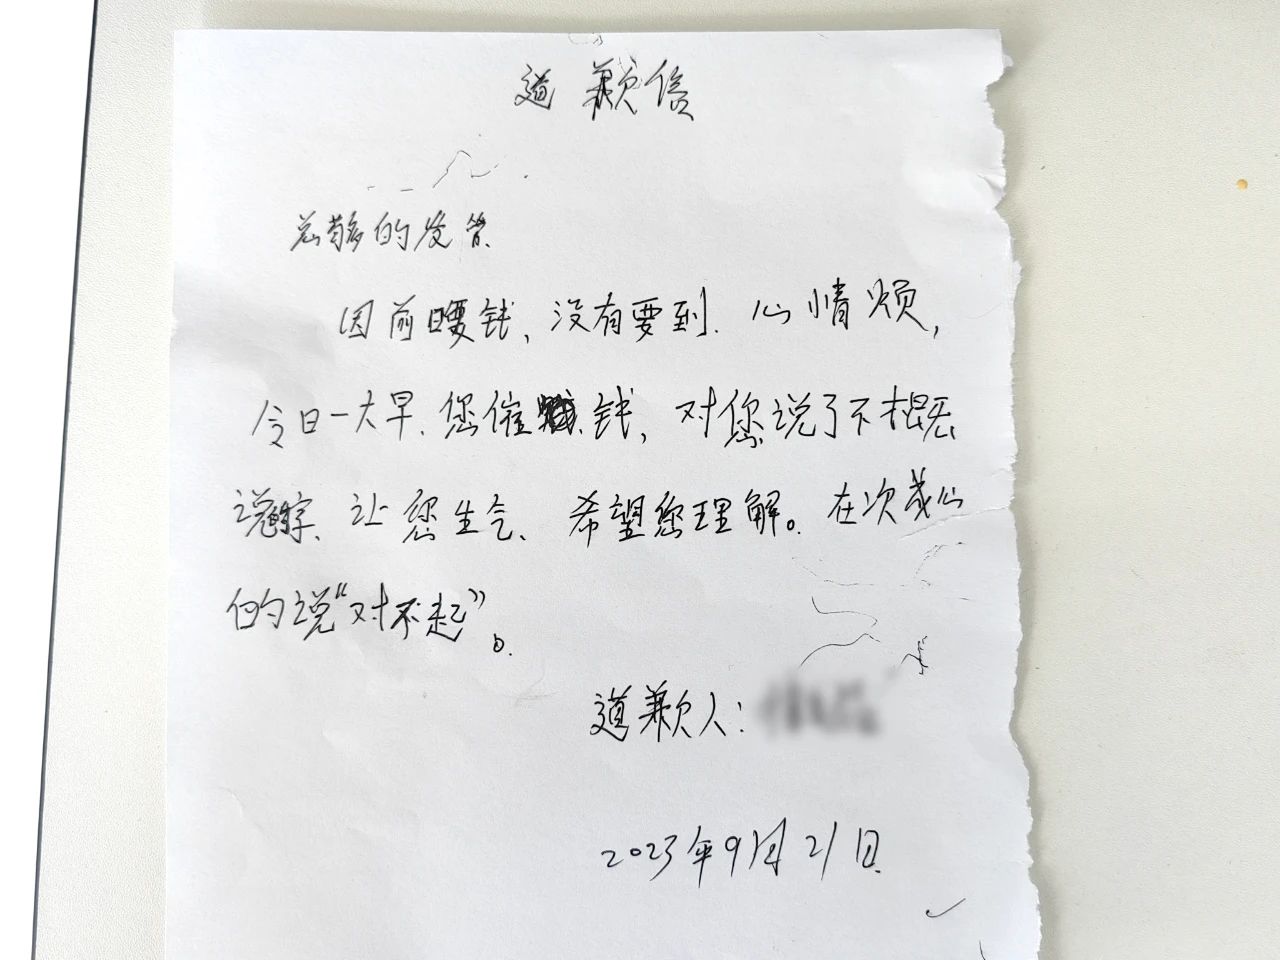 道歉信
尊敬的法官
因前要钱，没有要到．心情烦，
今日一大早．您催钱，对您说了不
让您生气、希望您理解。在次诚心
的说“对不起”。
道歉人：
2023年9月21日